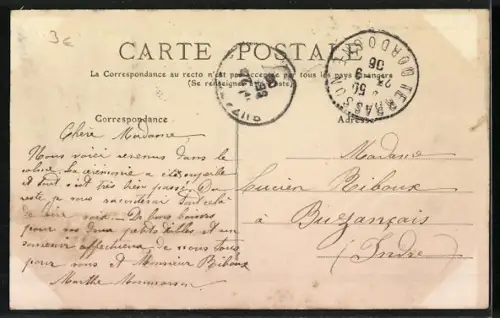 3€
CARTE POSTALE
La Correspondance au recto n'est pas acceptée par tous les pays étrangers
(Se renseigner à la Poste)
Correspondance
Adresse
Chère Madame,
Nous voici revenus dans le
calme. La cérémonie a été
et tout s'est très bien passé. Du
reste je vous raconterai tout cela
de vive voix. De bons baisers
pour vos deux petites filles et un
souvenir affectueux de nous tous
pour vous et Monsieur Riboux
Marthe
Madame
Lucien Riboux
à Buzançais
(Indre)
TERRASSON
DORDOGNE
23 9
06